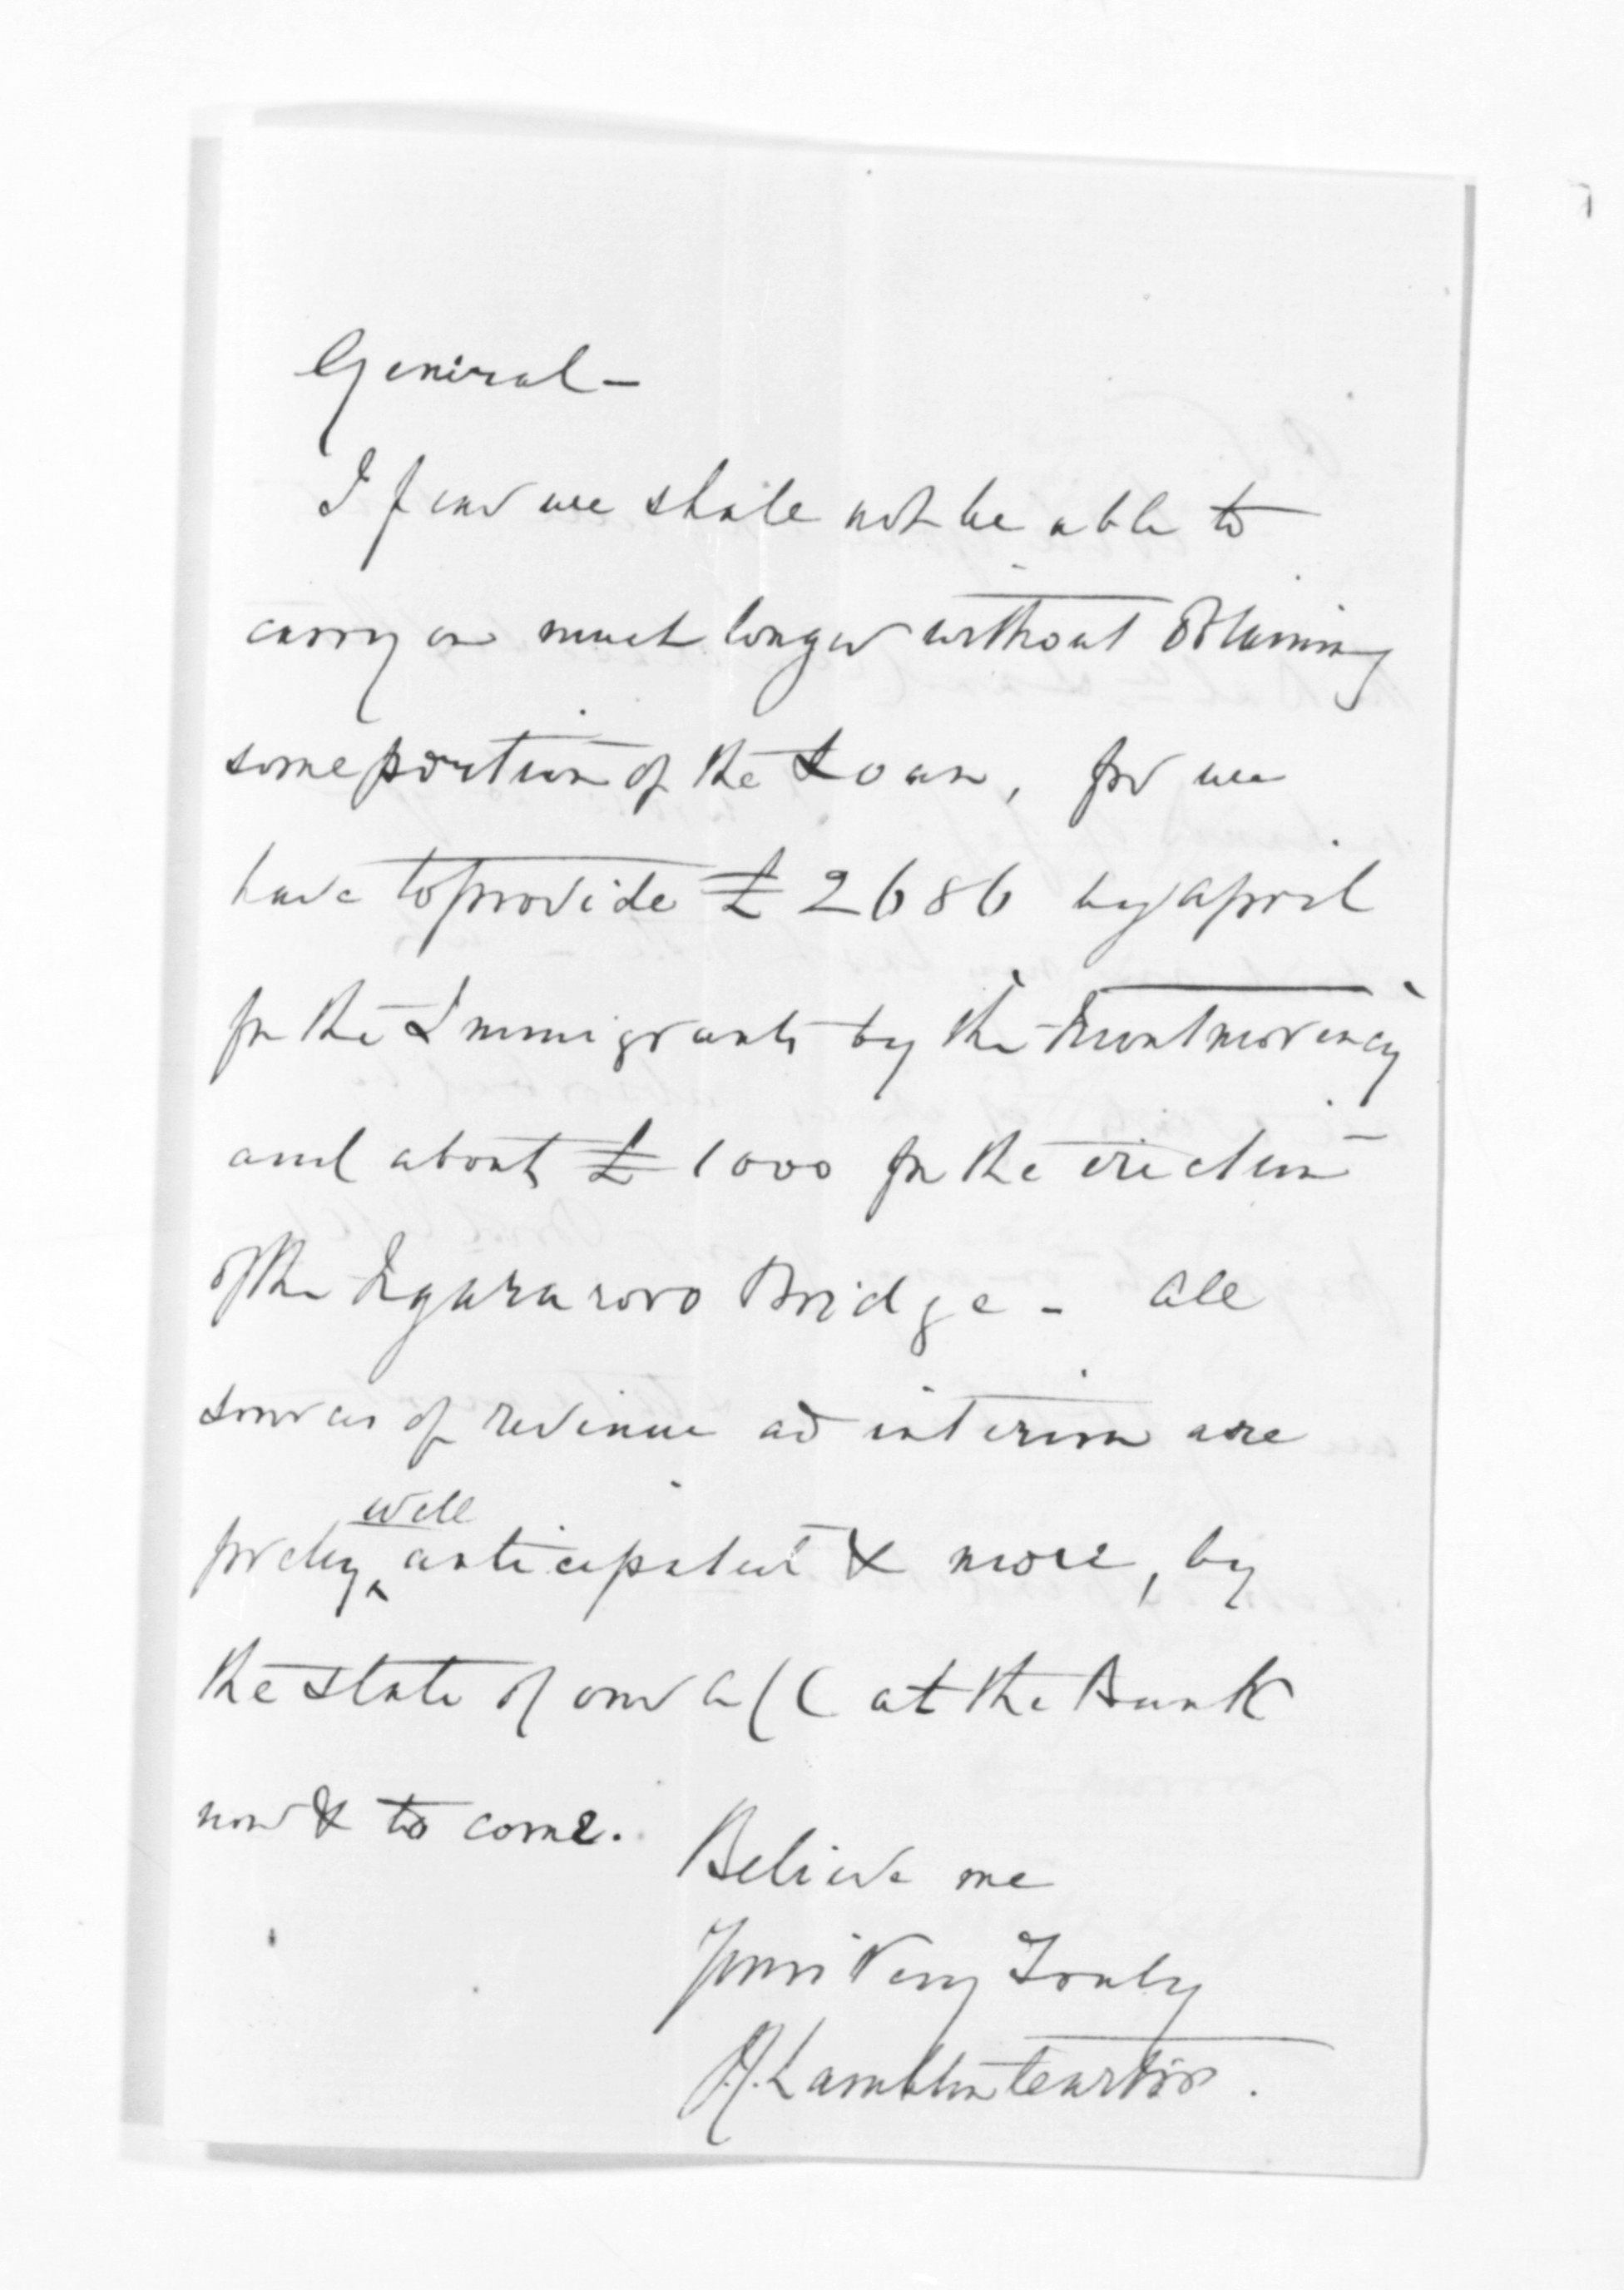 General -
I fear we shall not be able to
carry on much longer without obtaining
some portion of the Loan, for we
have to provide £2686 by April
for the Immigrants by the Montmorency
and about £1000 for the erection
of the Ngaruroro Bridge - All
sources of revenue ad interim are
well
pretty anticipated & more, by
the state of our a/c at the Bank
now & to come.
Believe me
Yours Very Truly